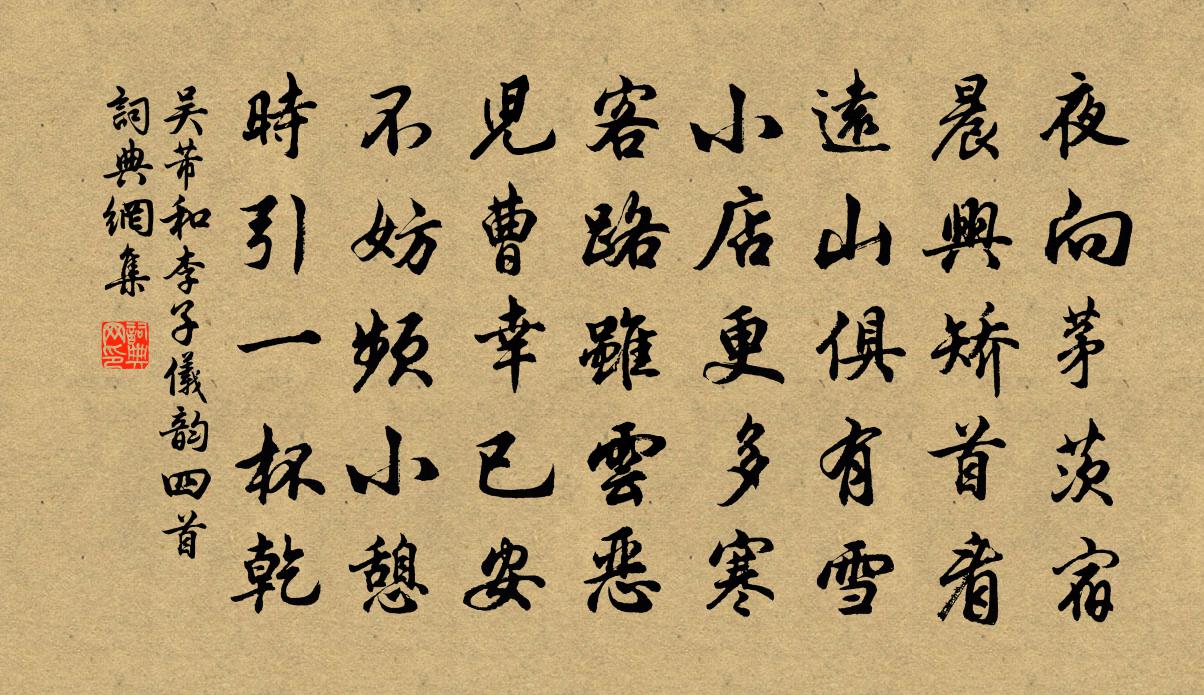 夜向茅茨宿
晨興矫首看
遠山俱有雪
小店更多寒
客路雖雲惡
児曹幸已安
不妨頻小憩
時引一杯乾
吴芾和李子儀韵四首
詞典網集
詞典网印